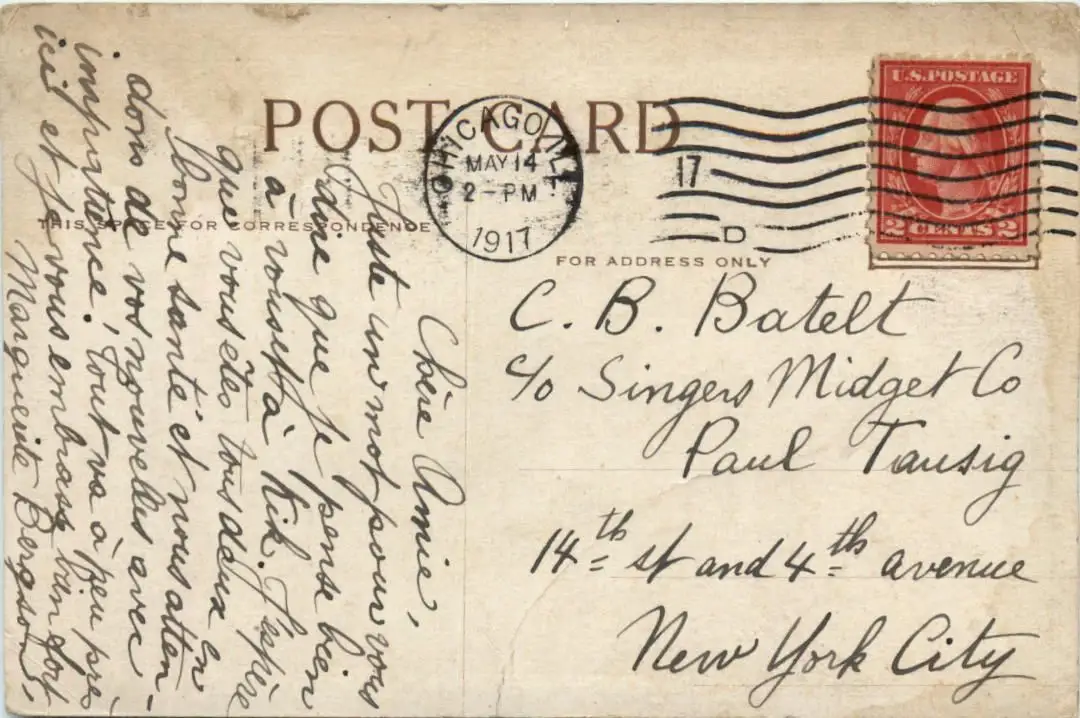 POST CARD
CHICAGO, ILL.
MAY 14
2 - PM
1917
17
D
U.S. POSTAGE
2 CENTS 2
THIS SPACE FOR CORRESPONDENCE
FOR ADDRESS ONLY
Chère Amie,
Juste un mot pour vous
dire que je pense bien
à vous et à Kik. J'espère
que vous êtes tous deux en
bonne santé et nous atten-
dons de vos nouvelles avec
impatience. Tout va à peu près
ici et je vous embrasse bien fort,
Marguerite Bergson,
C. B. Batelt
c/o Singers Midget Co
Paul Tausig
14th st and 4th avenue
New York City